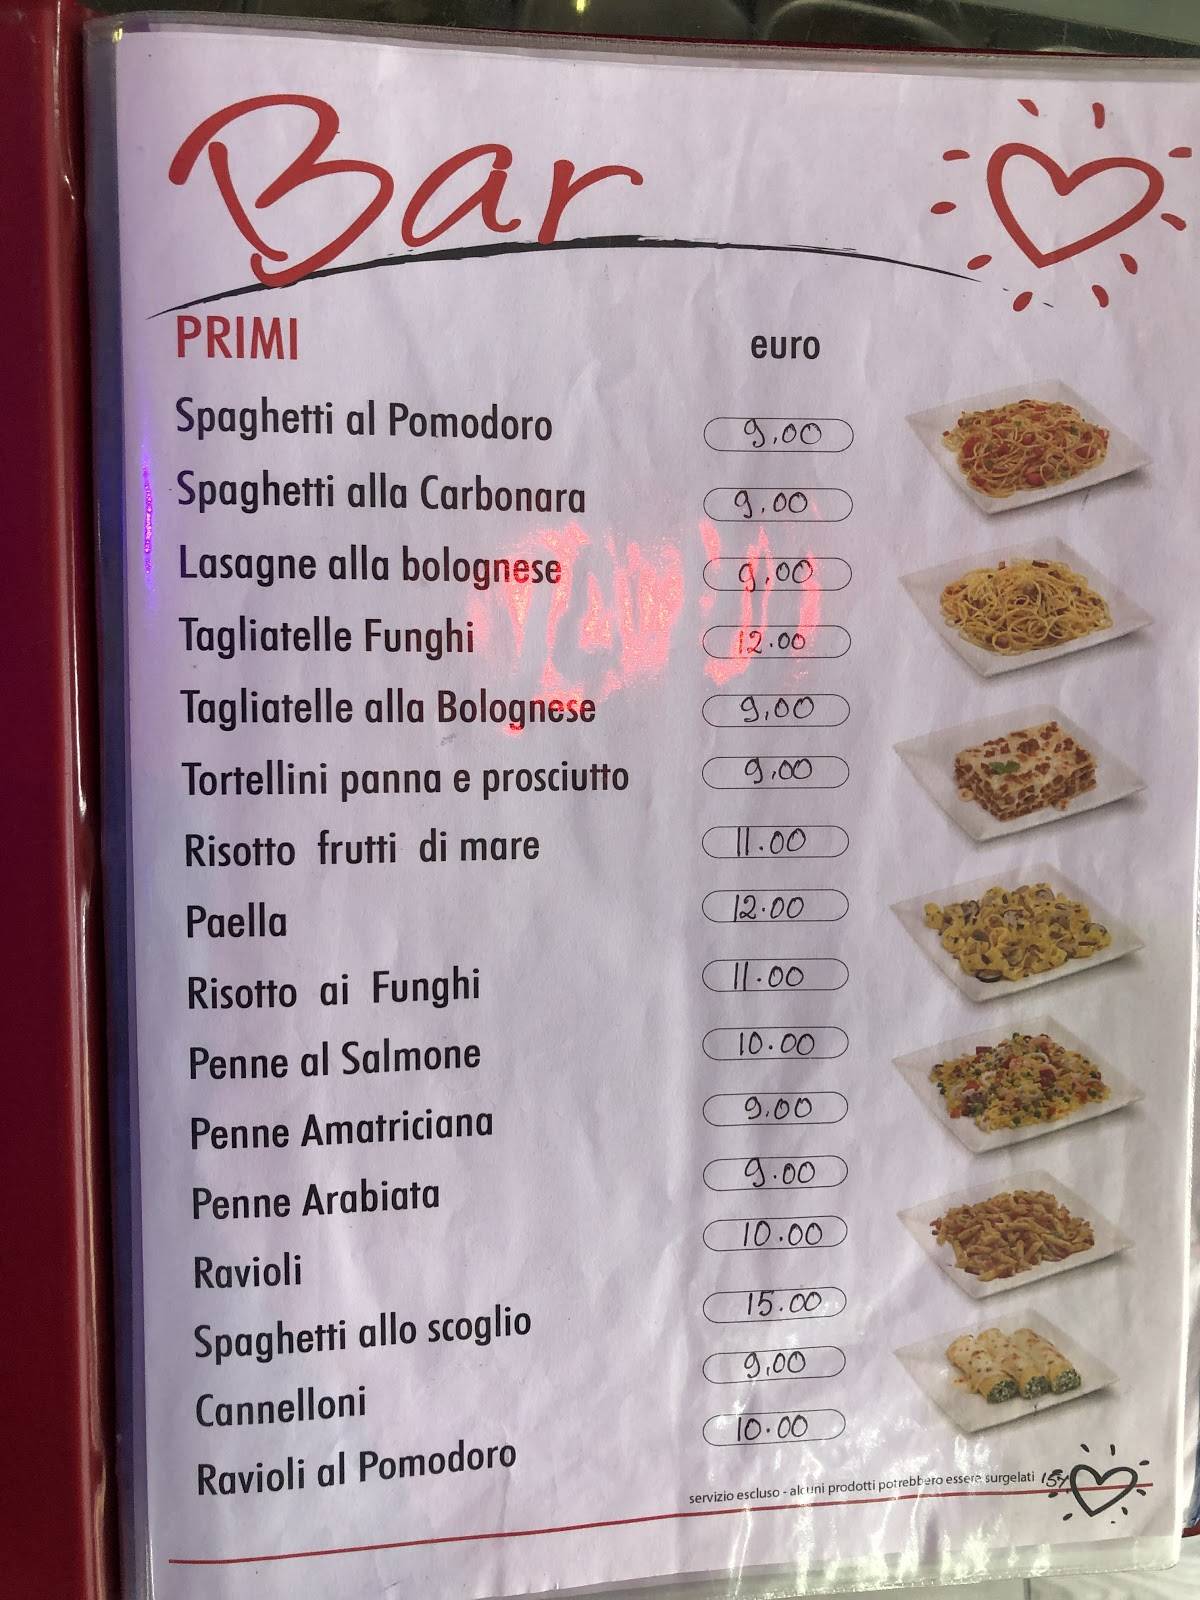 Bar
PRIMI euro
Spaghetti al Pomodoro 9,00
Spaghetti alla Carbonara 9.00
Lasagne alla bolognese 9,00
Tagliatelle Funghi 12.00
Tagliatelle alla Bolognese 9,00
Tortellini panna e prosciutto 9,00
Risotto frutti di mare 11.00
Paella 12.00
Risotto ai Funghi 11.00
Penne al Salmone 10.00
Penne Amatriciana 9.00
Penne Arabiata 9.00
Ravioli 10.00
Spaghetti allo scoglio 15.00
Cannelloni 9,00
Ravioli al Pomodoro 10.00
servizio escluso - alcuni prodotti potrebbero essere surgelati